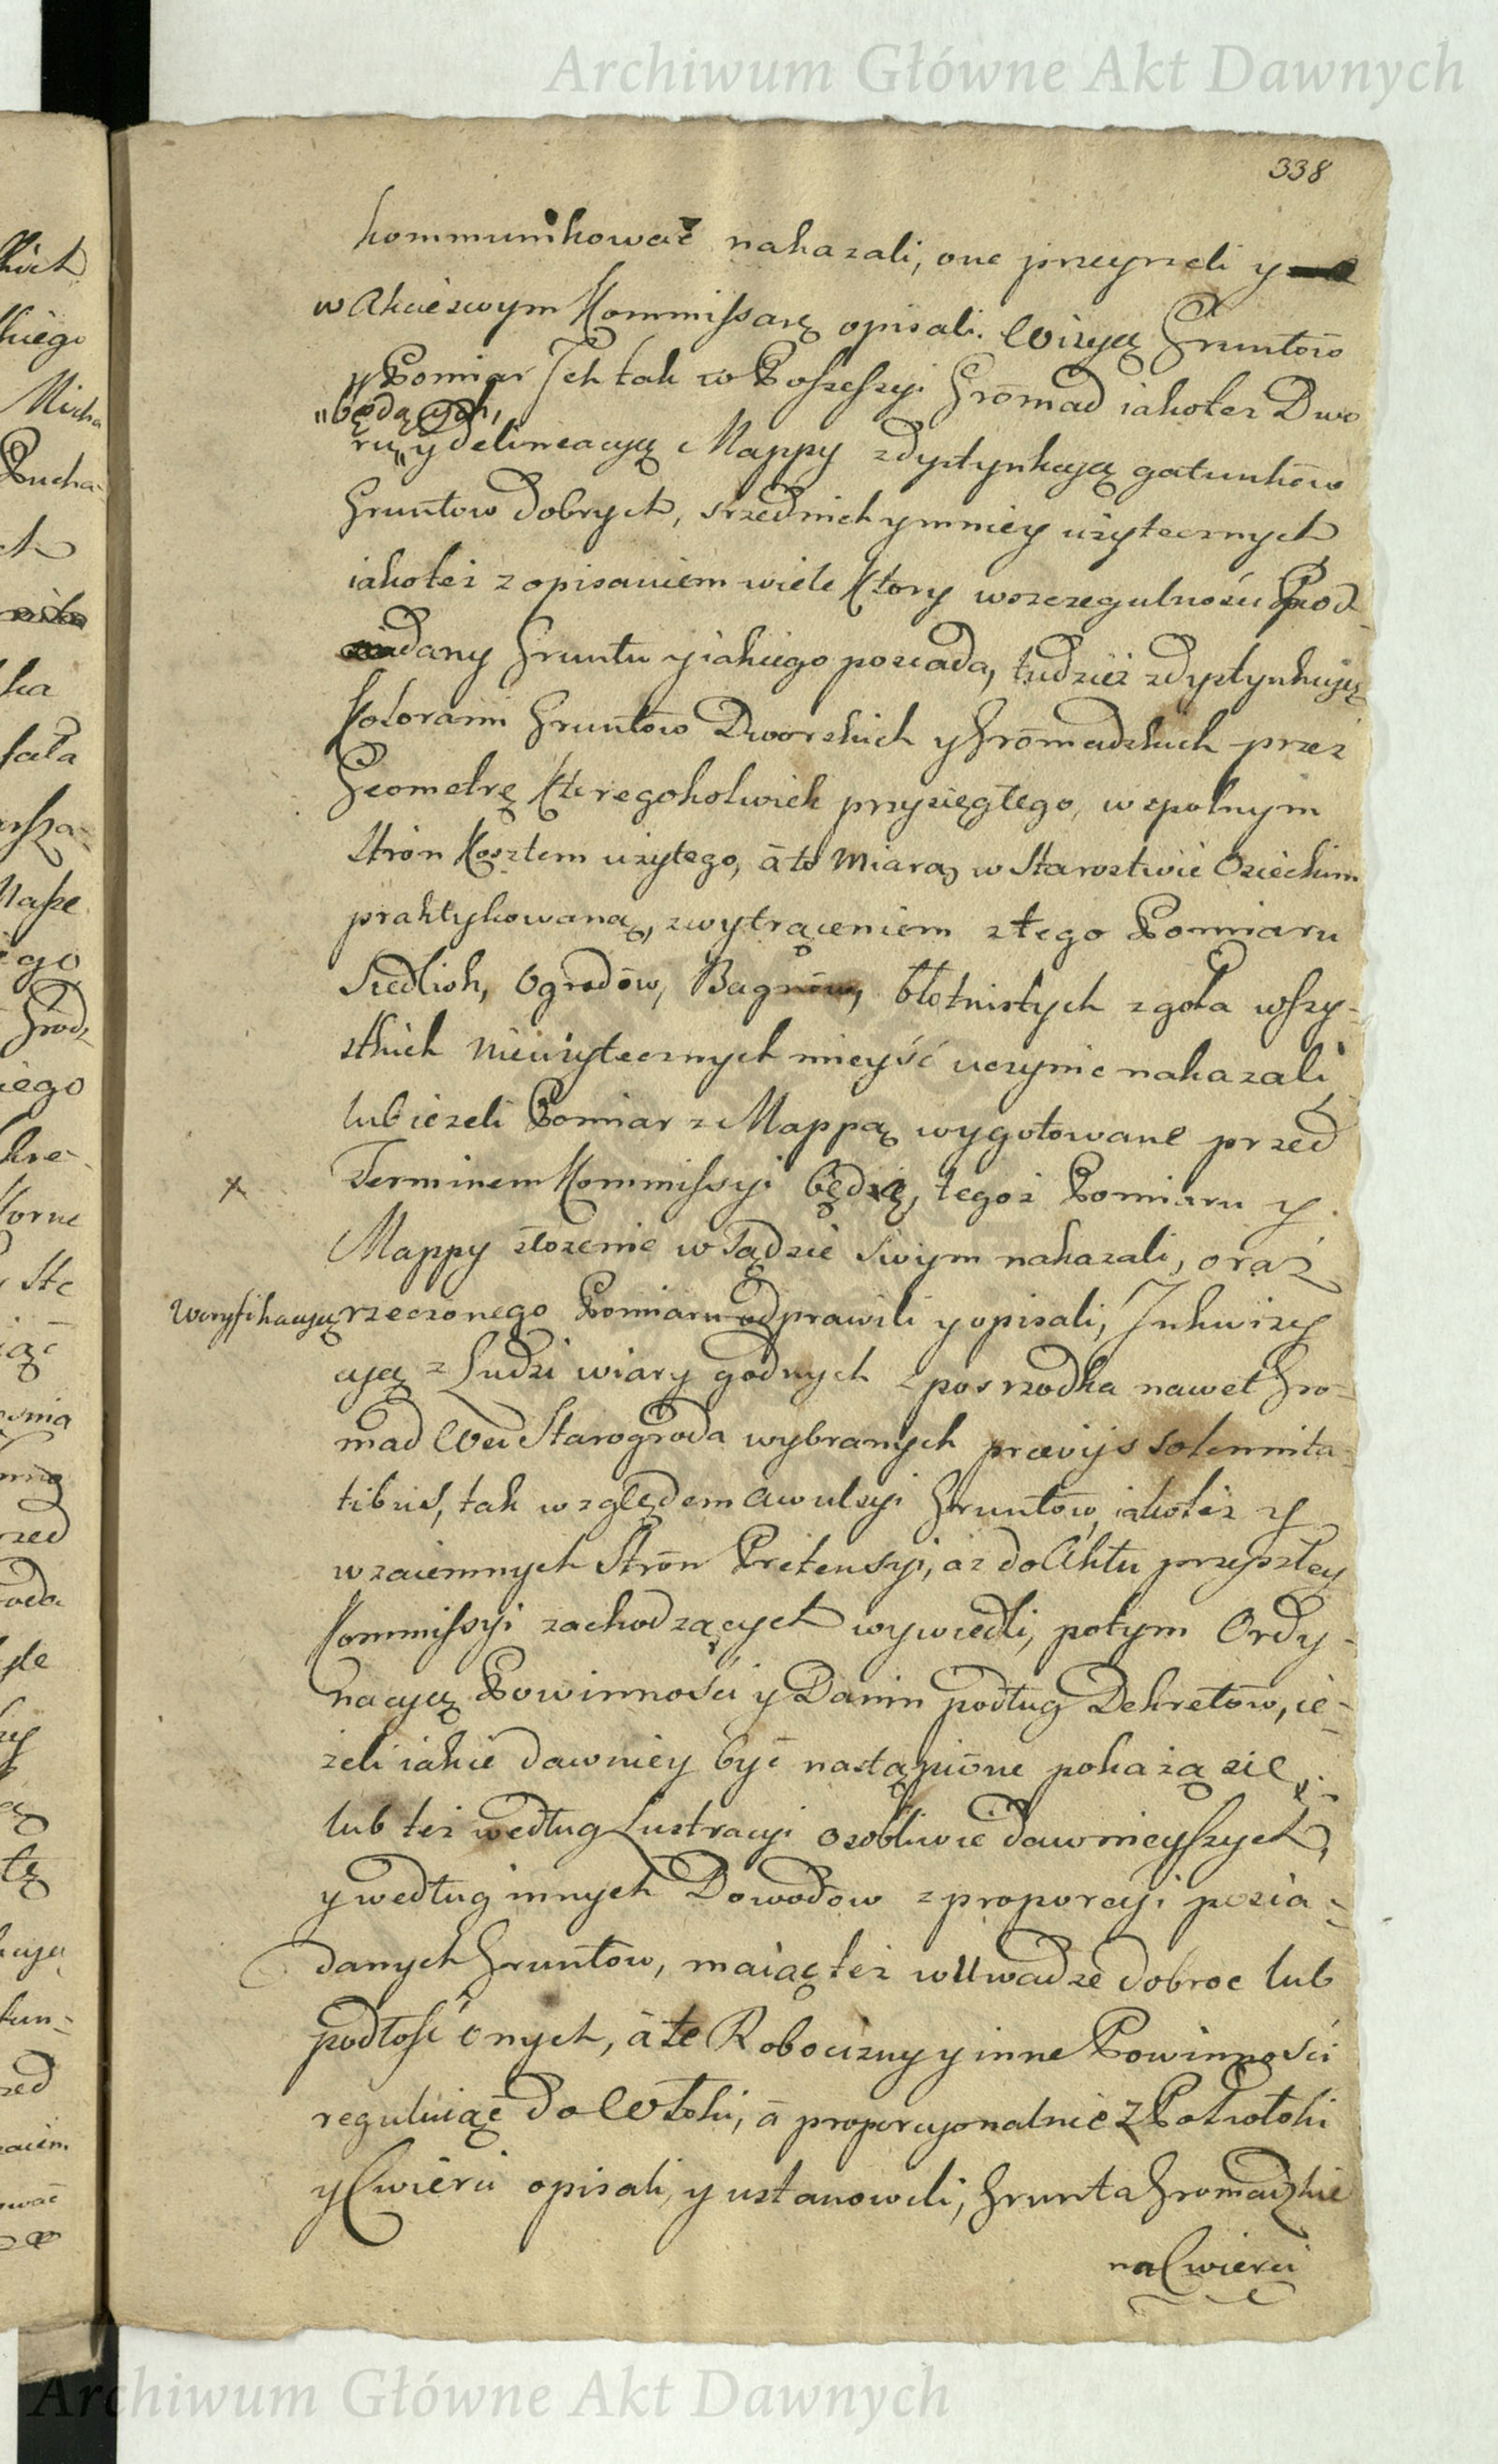 Archiwum Główne Akt Dawnych
338
kommunikować nakazali, one przeyrzeli y
w Akcie swym Kommissarz opisali. Wizyą Gruntów
y Pomiar Ich tak w Possessyi Gromad iakotez Dwo
„będących,
ru„ y delineacyą Mappy zdystynkcyą gatunków
Gruntow dobrych, srzednich y mniey uzytecznych
iakoteż z opisaniem wiele Ktory wszczegulności Pod-
dany Gruntu y iakiego posiada, tudzież zdystynkcyą
Kolorami Gruntów Dworskich y Gromadzkich przez
Geometrę Ktoregokolwiek przysięgłego, wspolnym
Strón Kosztem użytego, á to Miarą w Starostwie Osieckim
praktykowaną, zwytrąceniem z tego Pomiaru
Siedlisk, Ogrodów, Bagnów, błotnistych zgoła wszy-
stkich Nieużytecznych mieyść uczynic nakazali,
lub iezeli Pomiar z Mappą wygotowane przed
x Terminem Kommissyi będzie, tegoż Pomiaru y
Mappy złozenie w Sądzie Swym nakazali, oraz
Weryfikacyą rzeczonego Pomiaru odprawili y opisali, Inkwizy
cyą z Ludzi wiary godnych z posrzodka nawet Gro-
mad Wsi Starogroda wybranych praevijs solennita-
tibus, tak względem Awulsyi Gruntów, iakoteż y
wzaiemnych Strón Pretensyi, az do Aktu przyszłey
Kommissyi zachodzących wywiedli, potym Ordy-
nacyą Powinności y Danin podług Dekretow, ie-
żeli iakie dawniey być nastąpióne pokażą się,
lub też według Lustracyi osobliwie dawnieyszych,
y według innych Dowodow z proporcyi posia-
danych Gruntow, maiąc też w Uwadze dobroc lub
podłość onych, á te Robocizny y inne Powinności
reguluiąc do Włoki, á proporcyonalnie z Połwłoki
y Cwierci opisali, y ustanowili, Grunta Gromadzkie
na Cwierci
Archiwum Główne Akt Dawnych